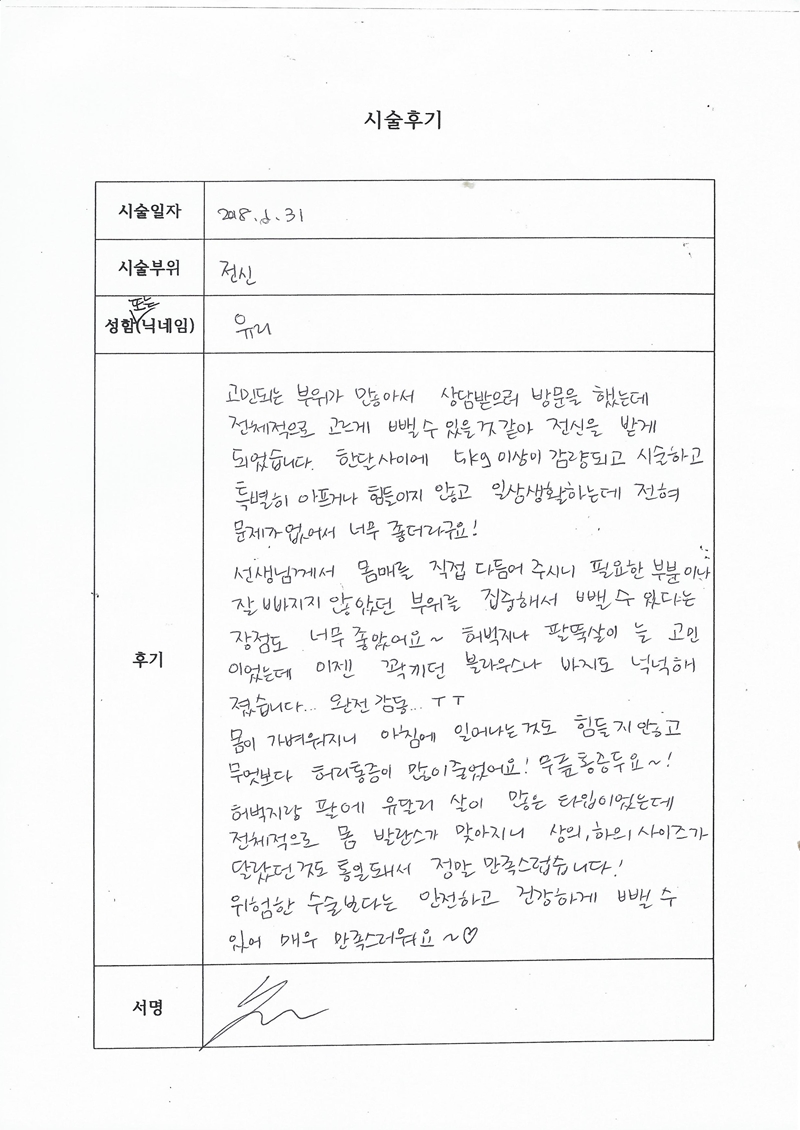 시술후기
시술일자 2018. 1. 31
시술부위 전신
또는
성함(닉네임) 유리
고민되는 부위가 많아서 상담받으러 방문을 했는데
전체적으로 고르게 뺄 수 있을것 같아 전신을 받게
되었습니다. 한달사이에 5kg 이상이 감량되고 시술하고
특별히 아프거나 힘들이지 않고 일상생활하는데 전혀
문제가 없어서 너무 좋더라구요!
선생님께서 몸매를 직접 다듬어 주시니 필요한 부분이나
잘 빠지지 않았던 부위를 집중해서 뺄 수 있다는
장점도 너무 좋았어요~ 허벅지나 팔뚝살이 늘 고민
이었는데 이젠 꽉끼던 블라우스나 바지도 넉넉해
졌습니다... 완전 감동... ㅜㅜ
몸이 가벼워지니 아침에 일어나는것도 힘들지 않고
무엇보다 허리통증이 많이 줄었어요! 무릎통증두요~!
허벅지랑 팔에 유달리 살이 많은 타입이었는데
전체적으로 몸 발란스가 맞아지니 상의, 하의 사이즈가
달랐던것도 통일돼서 정말 만족스럽습니다!
위험한 수술보다는 안전하고 건강하게 뺄 수
있어 매우 만족스러워요~♡
후기
서명